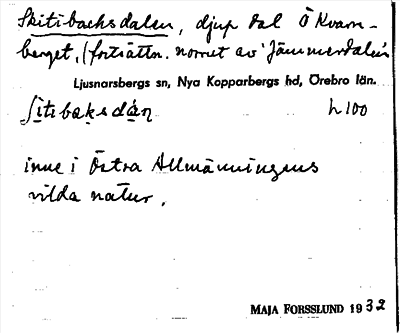 Skitibacksdalen, djup dal Ö Kvarn-
berget, (fortsättn. norrut av Jämmerdalen
Ljusnarsbergs sn, Nya Kopparbergs hd, Örebro län.
ſitibaksdán h 100
inne i Östra Allmänningens
vilda natur.
MAJA FORSSLUND 1932